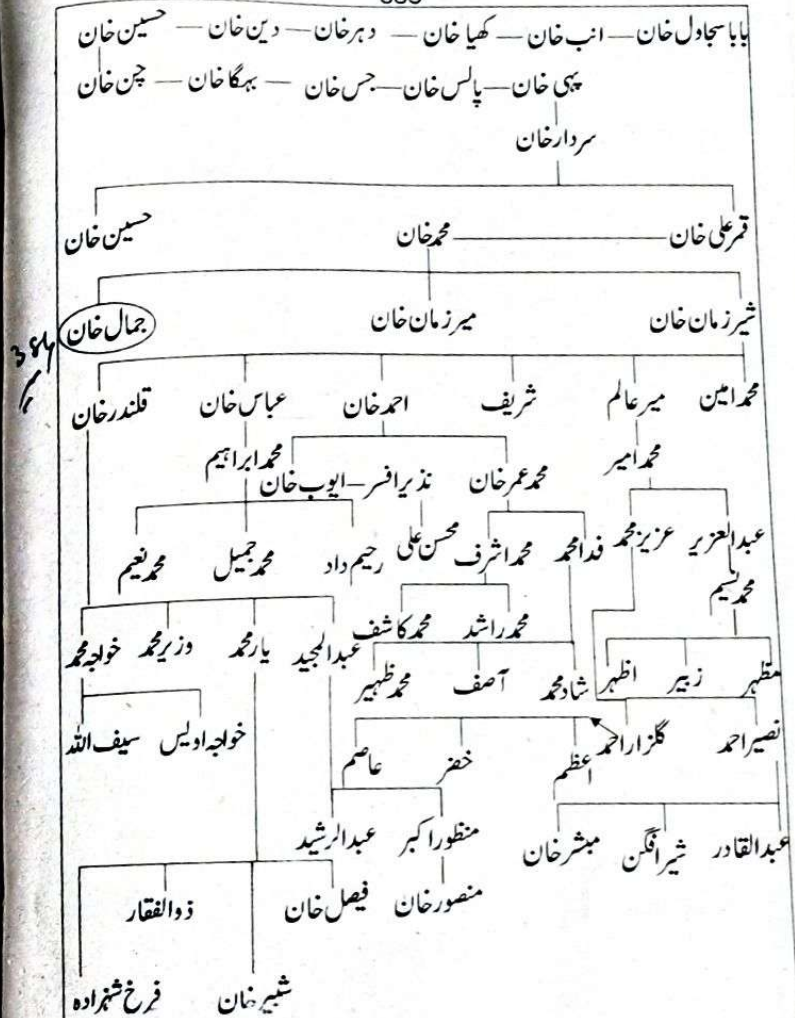 بابا سجاول خان — انب خان — کھیا خان — دہر خان — دین خان — حسین خان
پہی خان — پالس خان — جس خان — بہگا خان — چن خان
سردار خان
قمر علی خان — محمد خان حسین خان
شیر زمان خان میر زمان خان جمال خان
384
محمد امین میر عالم شریف احمد خان عباس خان قلندر خان
محمد امیر محمد عمر خان نذیر افسر — ایوب خان محمد ابراہیم
عبدالعزیر عزیز محمد فدا محمد محمد اشرف محسن علی رحیم داد محمد جمیل محمد نعیم
محمد نسیم
محمد راشد محمد کاشف عبدالمجید یار محمد وزیر محمد خواجہ محمد
مظہر زبیر اظہر شاد محمد آصف محمد ظہیر
نصیر احمد گلزار احمد اعظم خضر عاصم خواجہ اویس سیف اللہ
عبدالقادر شیر افگن مبشر خان منظور اکبر عبدالرشید
منصور خان فیصل خان ذوالفقار
شبیر خان فرخ شہزادہ